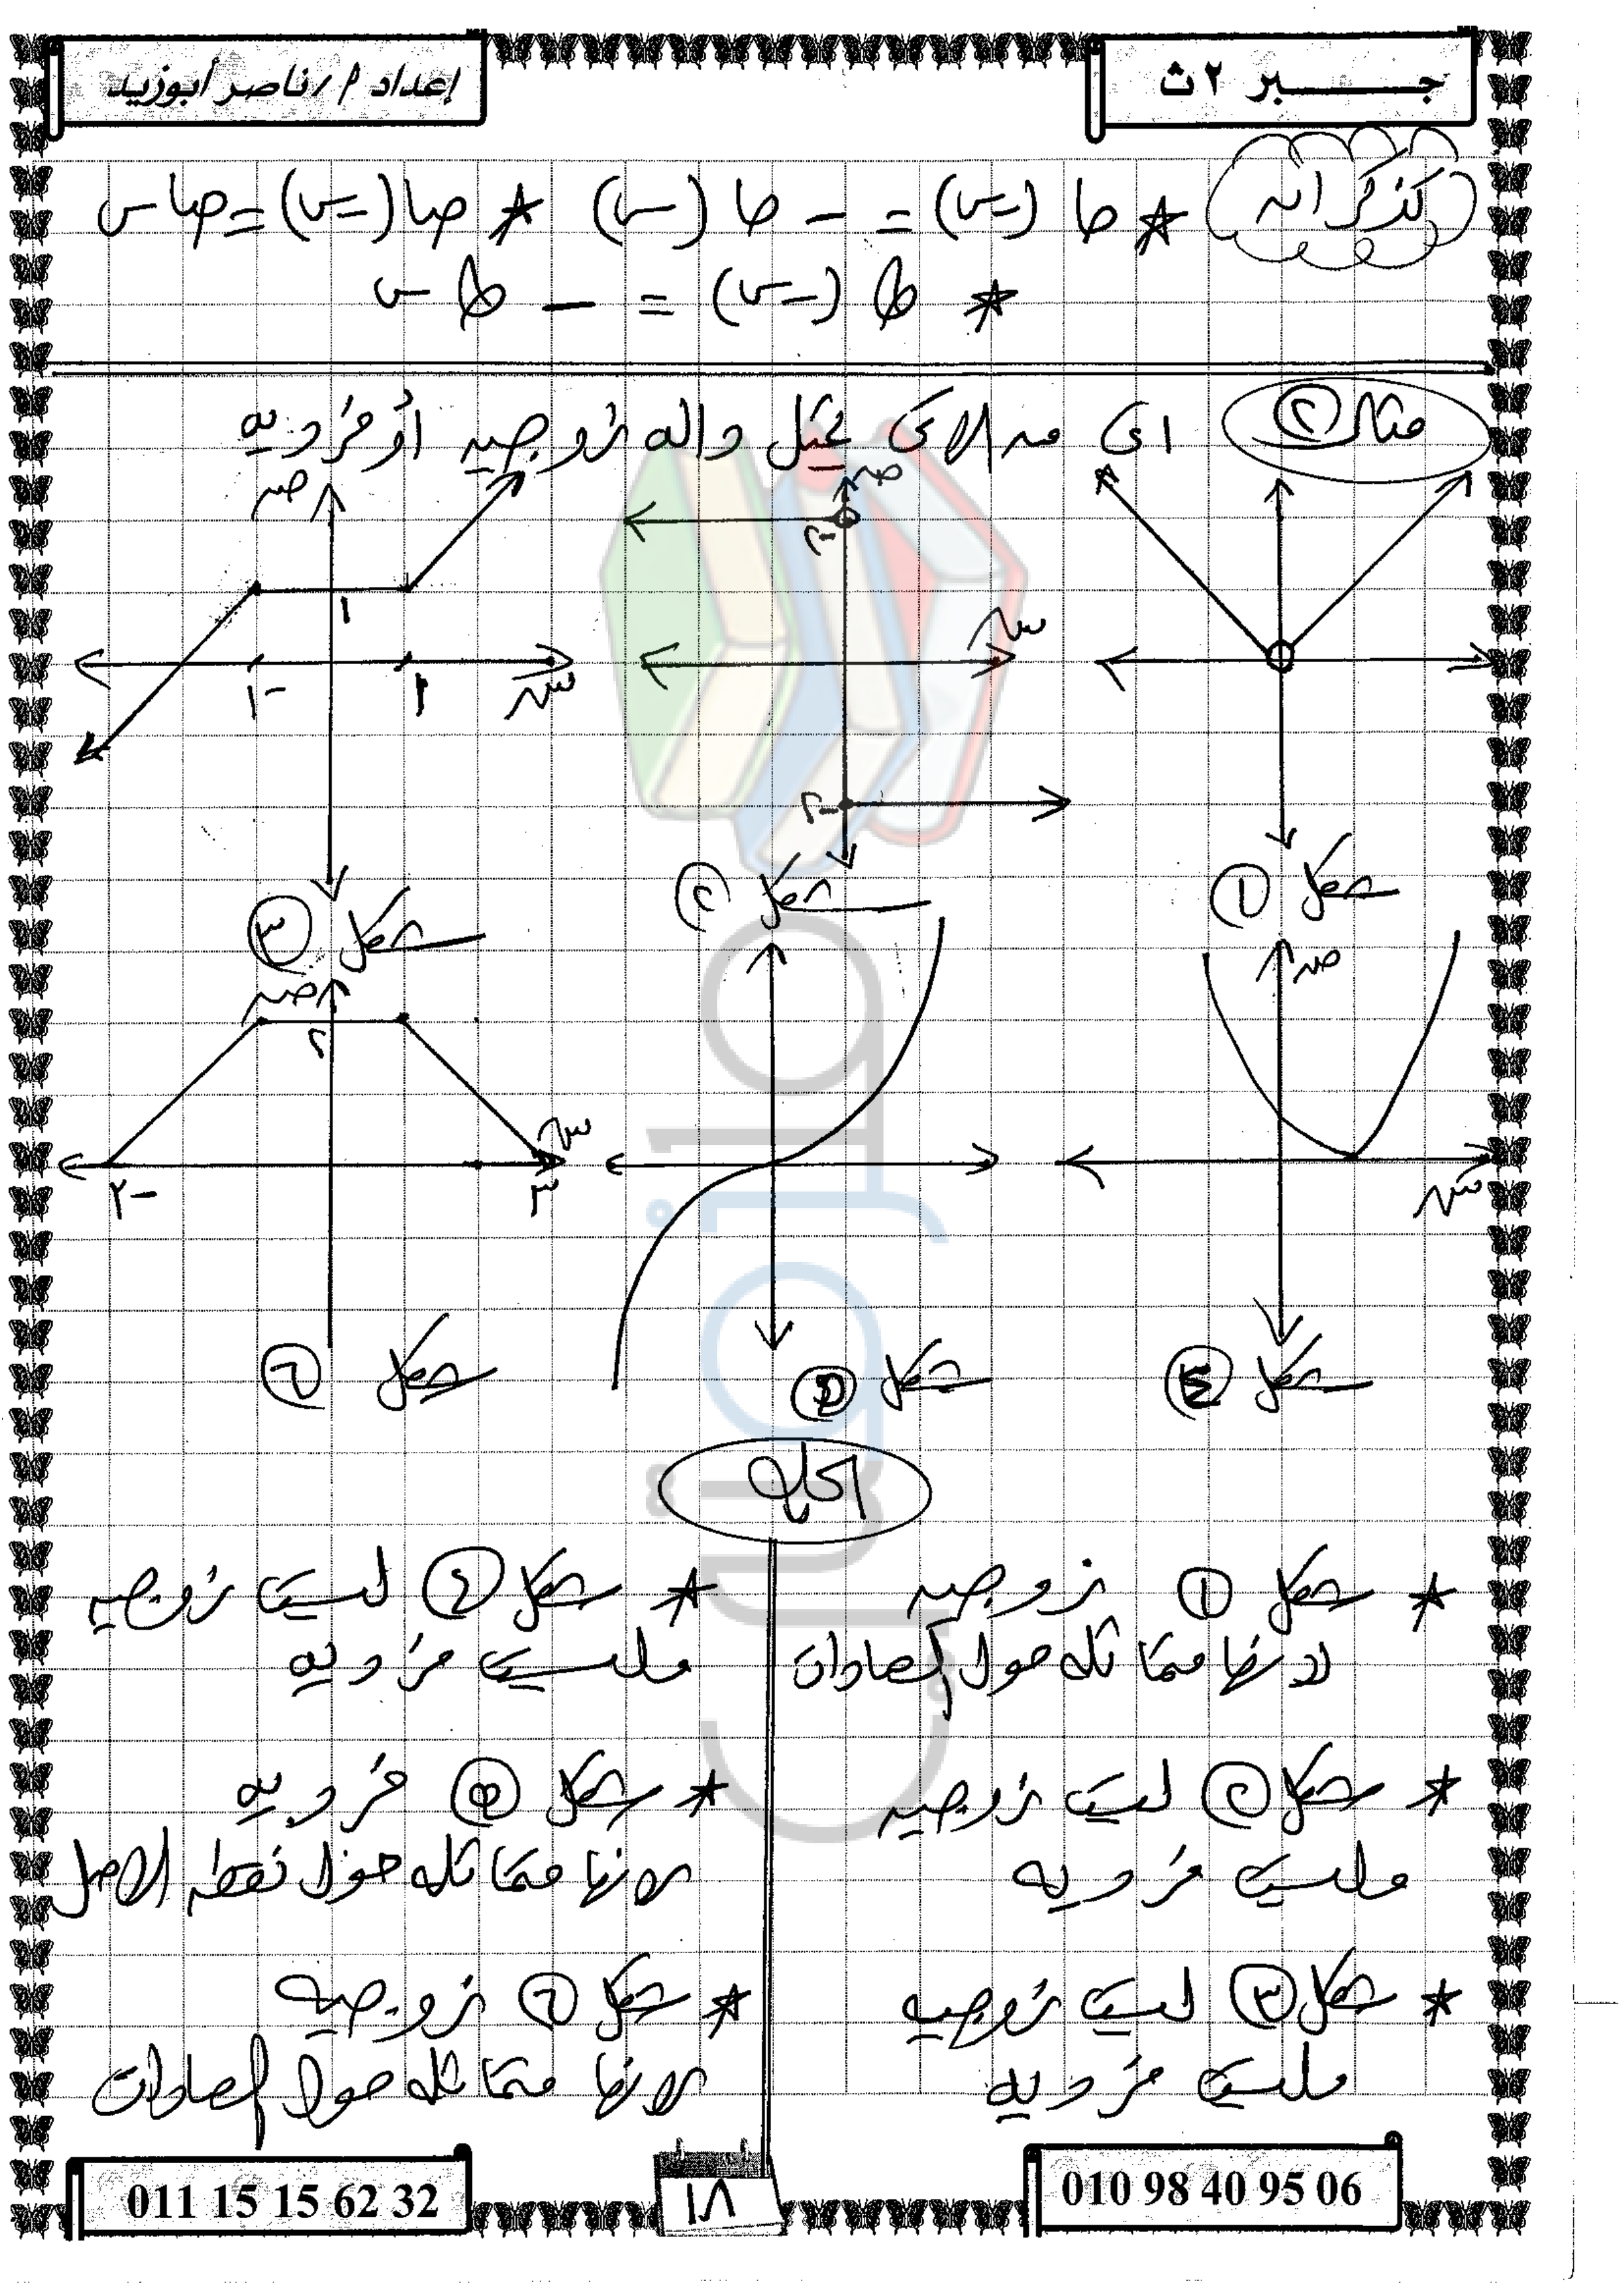 جبر ٢ث
إعداد أ/ناصر أبوزيد
تذكر أن
* حا (-س) = - حا (س) * حتا (-س) = حتا س
* طا (-س) = - طا س
مثال ٢ اى من الآتى يمثل داله زوجيه أو فرديه
ص
ص
٢-
١
س
س
١-
١
٢-
شكل ١
شكل ٢
شكل ٣
ص
ص
٢
س
س
٢-
٣
شكل ٤
شكل ٥
شكل ٦
الحل
* شكل ١ زوجيه
لأنها متماثله حول الصادات
* شكل ٢ ليست زوجيه
وليست فرديه
* شكل ٣ ليست زوجيه
وليست فرديه
* شكل ٤ ليست زوجيه
وليست فرديه
* شكل ٥ فرديه
لانها متماثله حول نقطه الاصل
* شكل ٦ زوجيه
لانها متماثله حول الصادات
011 15 15 62 32
١٨
010 98 40 95 06